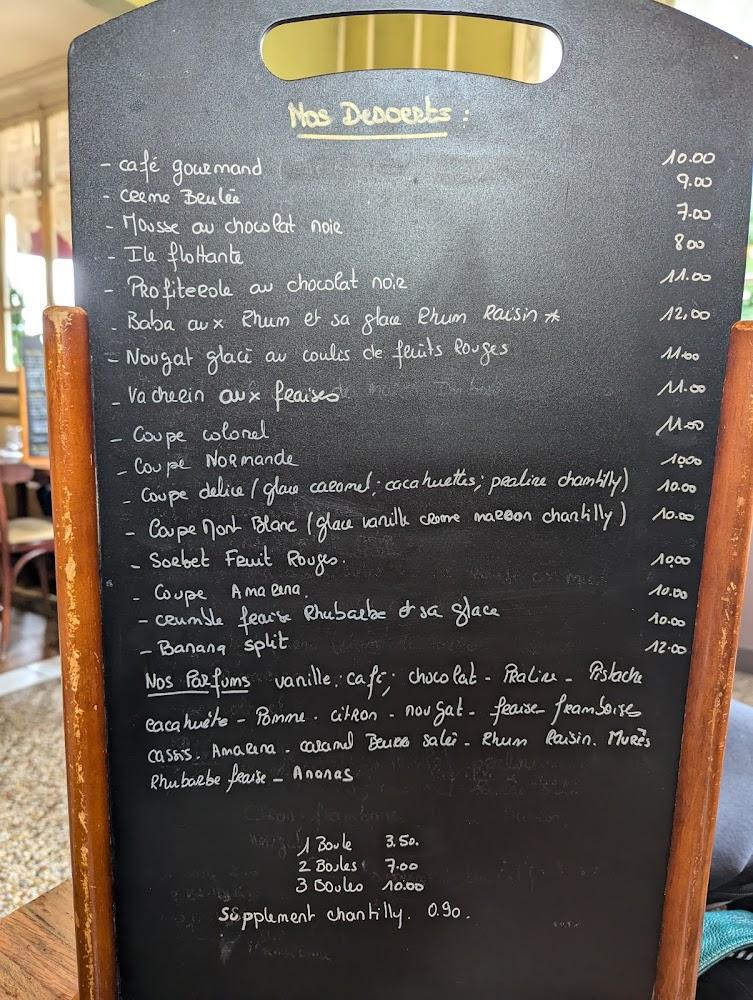 Nos Desserts :
- café gourmand 10.00
- creme Brulée 9.00
- Mousse au chocolat noir 7.00
- Ile flottante 8 00
- Profiterole au chocolat noir 11.00
- Baba aux Rhum et sa glace Rhum Raisin * 12,00
- Nougat glacé au coulis de fruits Rouges 11.00
- Vacherin aux fraises 11.00
- Coupe colonel 11.00
- Coupe Normande 10.00
- Coupe delice (glace caramel; cacahuettes; praline chantilly) 10.00
- Coupe Mont Blanc (glace vanille creme marron chantilly) 10.00
- Sorbet Fruit Rouges. 10.00
- Coupe Amarena. 10.00
- crumble fraise Rhubarbe et sa glace 10.00
- Banana split 12.00
Nos Parfums vanille; café; chocolat - Praline - Pistache
cacahuète - Pomme - citron - nougat - fraise - framboises
cassis. Amarena - caramel Beurre salé - Rhum Raisin. Mures
Rhubarbe fraise - Ananas
1 Boule 3.50.
2 Boules 7.00
3 Boules 10.00
Supplement chantilly. 0.90.